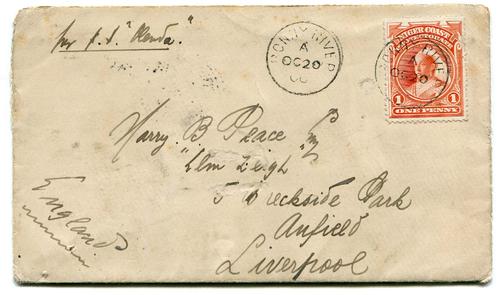 per s.s. "Kenda".
BONNY RIVER
A
OC 20
NIGER COAST
PROTECTORATE
BONNY RIVER
A
OC 20
1 ONE PENNY 1
Harry B. Peace
"Elm Leigh"
5 Breckside Park
Anfield
Liverpool
England